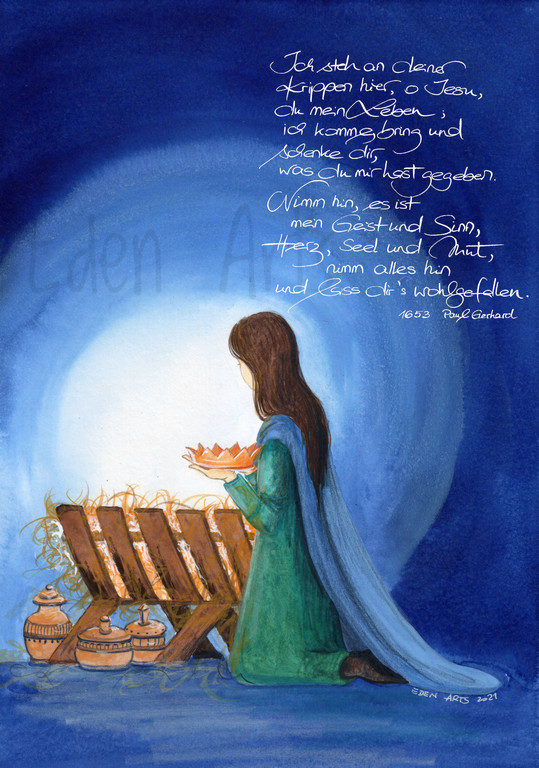 Ich steh an deiner
Krippen hier, o Jesu,
du mein Leben;
ich komme, bring und
schenke dir,
was du mir hast gegeben.
Nimm hin, es ist
mein Geist und Sinn,
Herz, Seel und Mut,
nimm alles hin
und lass dir's wohlgefallen.
1653 Paul Gerhard
Eden Art
EDEN ARTS 2021